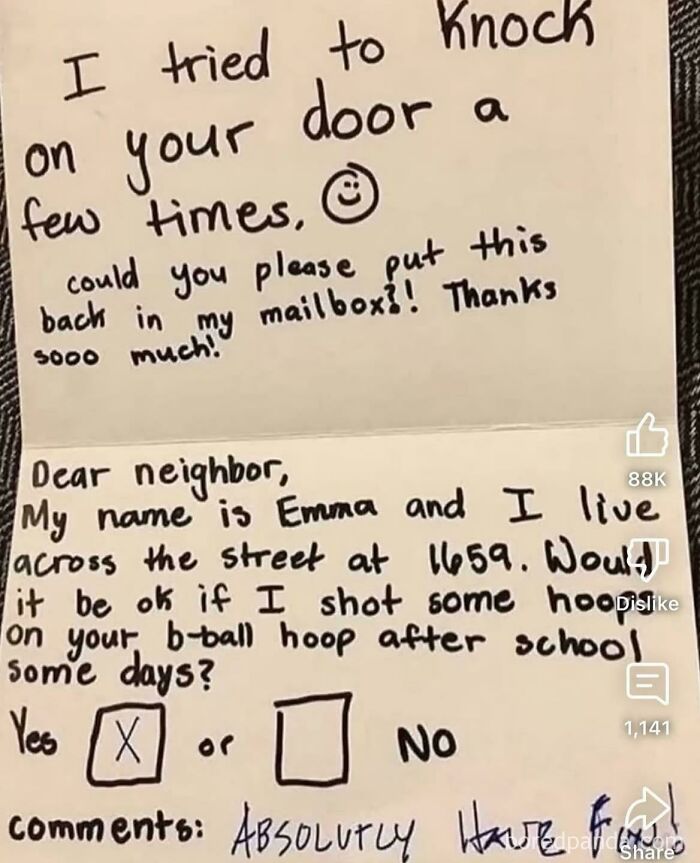 I tried to knock
on your door a
few times.
could you please put this
back in my mailbox?! Thanks
sooo much!
Dear neighbor,
My name is Emma and I live
across the street at 1659. Would
it be ok if I shot some hoops
on your b-ball hoop after school
some days?
Yes X or NO
comments: ABSOLUTLY HAVE
88K
Dislike
1,141
Share
boredpanda.com